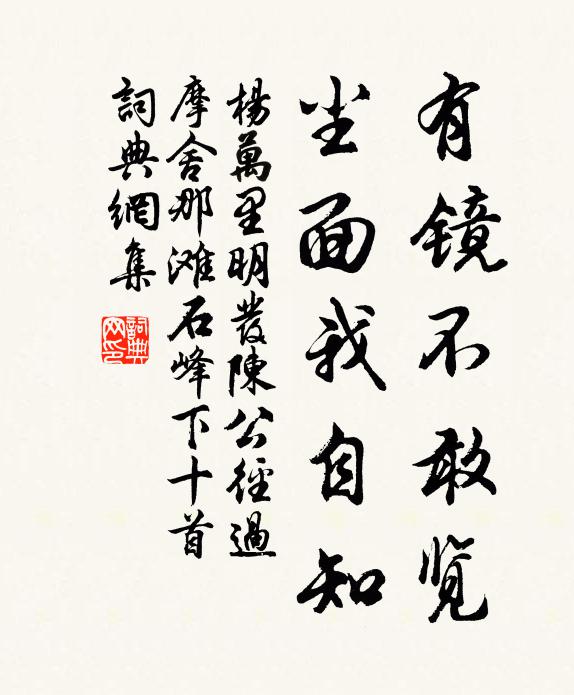 有镜不敢览
尘面我自知
楊萬里明發陳公徑過
摩舍那滩石峰下十首
詞典網集
詞典网印